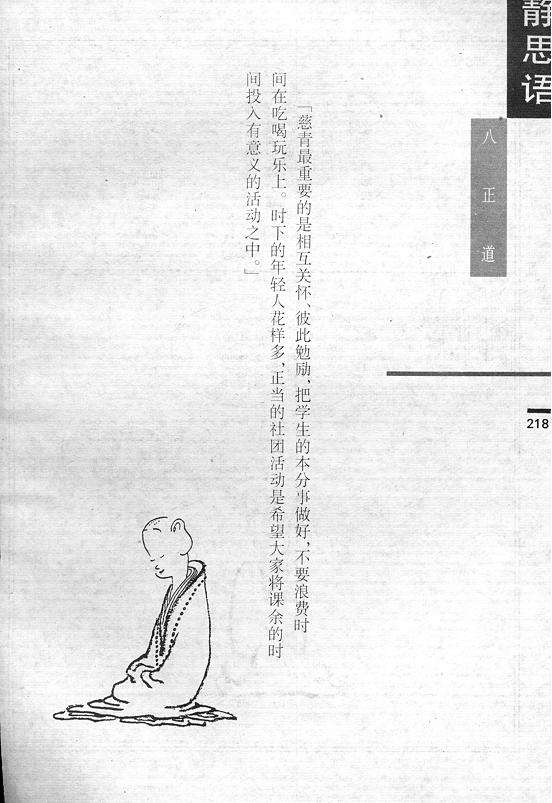 静思语
八正道
218
「慈青最重要的是相互关怀、彼此勉励，把学生的本分事做好，不要浪费时
间在吃喝玩乐上。时下的年轻人花样多，正当的社团活动是希望大家将课余的时
间投入有意义的活动之中。」